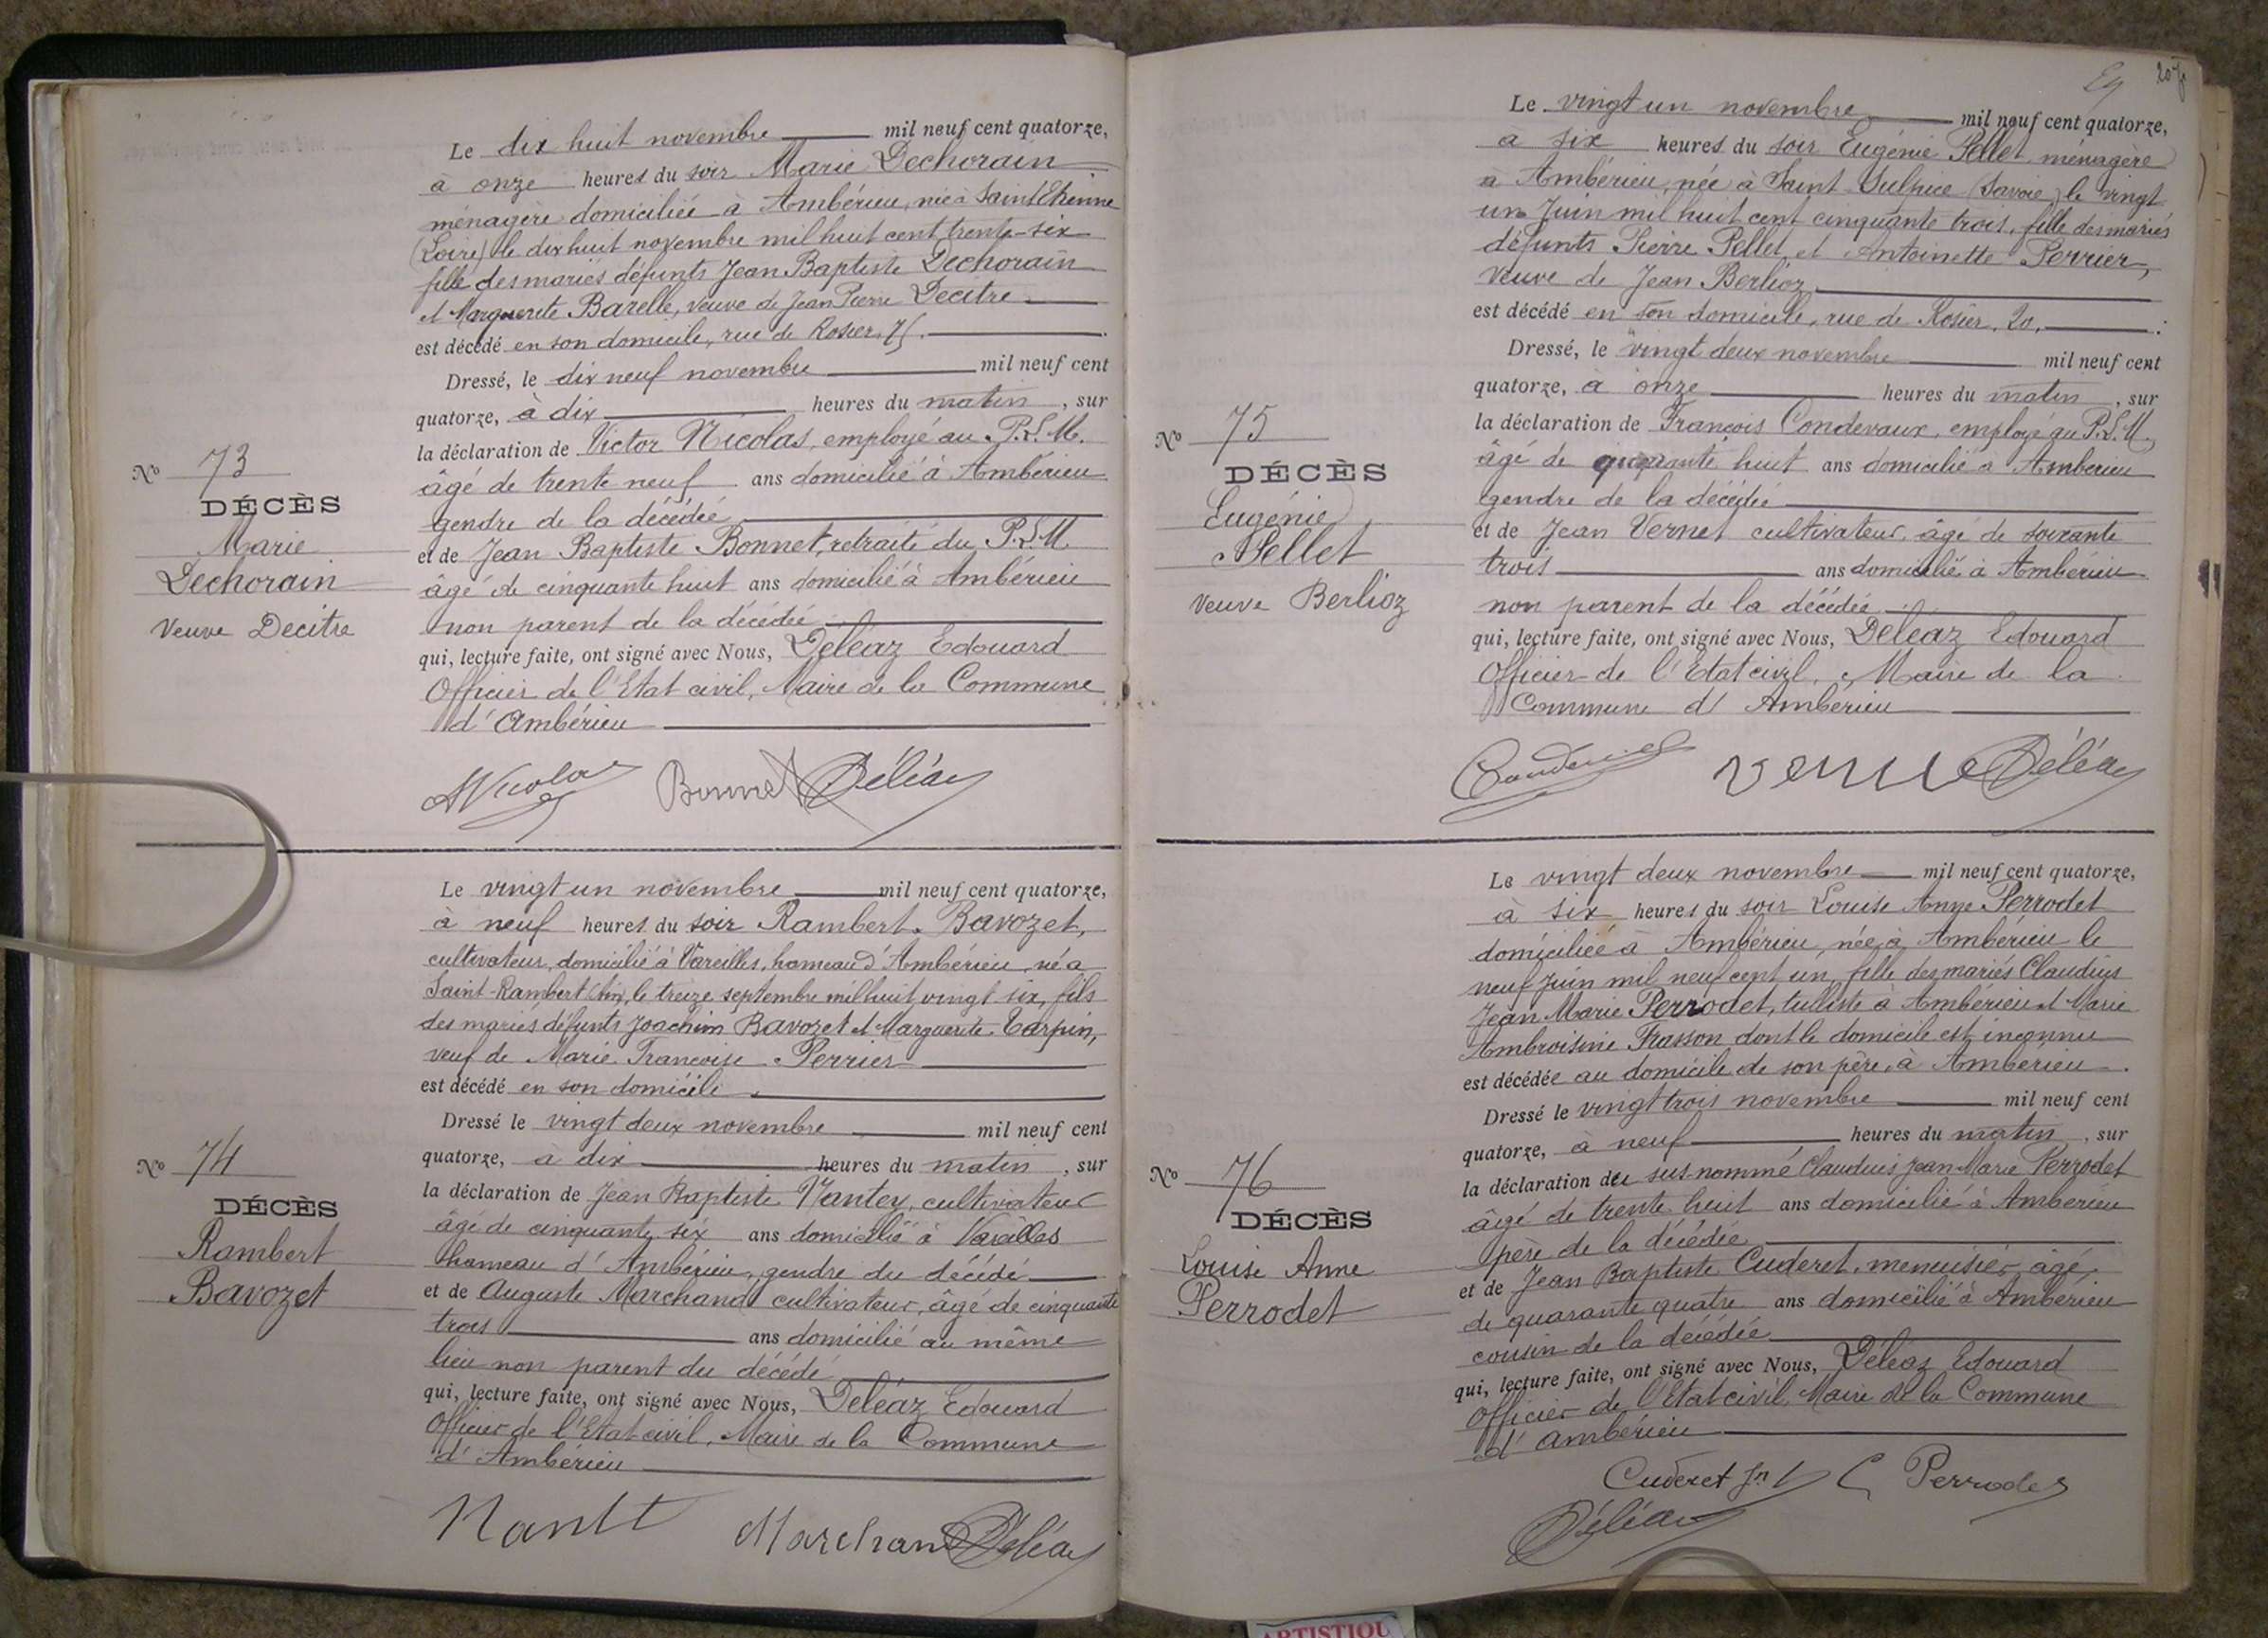 Le dix huit novembre mil neuf cent quatorze,
à onze heures du soir Marie Dechorain
ménagère domiciliée à Ambérieu, née à Saint Etienne
(Loire) le dix huit novembre mil huit cent trente-six
fille des mariés défunts Jean Baptiste Dechorain
et Marguerite Barelle, veuve de Jean Pierre Decitre
est décédé en son domicile, rue de Rosier, 75.
Dressé, le dix neuf novembre mil neuf cent
quatorze, à dix heures du matin, sur
la déclaration de Victor Nicolas, employé au P.L.M.
âgé de trente neuf ans domicilié à Ambérieu
gendre de la décédée
et de Jean Baptiste Bonnet, retraité du P.L.M.
âgé de cinquante huit ans domicilié à Ambérieu
non parent de la décédée
qui, lecture faite, ont signé avec Nous, Deléaz Edouard
Officier de l'Etat civil, Maire de la Commune
d'Ambérieu
No 73
DÉCÈS
Marie
Dechorain
Veuve Decitre
Nicolas Bonnet Déléaz
Le vingt un novembre mil neuf cent quatorze,
à neuf heures du soir Rambert Bavozet,
cultivateur, domicilié à Vareilles, hameau d'Ambérieu, né à
Saint-Rambert (Ain), le treize septembre mil huit vingt six, fils
des mariés défunts Joachim Bavozet et Marguerite Tarpin,
veuf de Marie Françoise Perrier
est décédé en son domicile
Dressé le vingt deux novembre mil neuf cent
quatorze, à dix heures du matin, sur
la déclaration de Jean Baptiste Nantey, cultivateur
âgé de cinquante six ans domicilié à Vareilles
hameau d'Ambérieu, gendre du décédé
et de Auguste Marchand cultivateur, âgé de cinquante
trois ans domicilié au même
lieu non parent du décédé
qui, lecture faite, ont signé avec Nous, Deléaz Edouard
Officier de l'Etat civil, Maire de la Commune
d'Ambérieu
No 74
DÉCÈS
Rambert
Bavozet
Marchand Déléaz
207
Le vingt un novembre mil neuf cent quatorze,
a six heures du soir Eugénie Pellet ménagère
à Ambérieu, née à Saint Sulpice (Savoie) le vingt
un Juin mil huit cent cinquante trois, fille des mariés
défunts Pierre Pellet et Antoinette Perrier,
veuve de Jean Berlioz
est décédé en son domicile, rue de Rosier, 20.
Dressé, le vingt deux novembre mil neuf cent
quatorze, à onze heures du matin, sur
la déclaration de François Condevaux, employé au P.L.M.,
âgé de huit ans domicilié à Ambérieu
gendre de la décédée
et de Jean Vernet cultivateur, âgé de soixante
trois ans domicilié à Ambérieu
non parent de la décédée
qui, lecture faite, ont signé avec Nous, Deléaz Edouard
Officier de l'Etat civil, Maire de la
Commune d'Ambérieu
No 75
DÉCÈS
Eugénie
Pellet
Veuve Berlioz
Déléaz
Le vingt deux novembre mil neuf cent quatorze,
à six heures du soir Louise Anne Perrodet
domiciliée à Ambérieu, née à Ambérieu le
neuf Juin mil neuf cent un, fille des mariés Claudius
Jean Marie Perrodet, tuiliste à Ambérieu et Marie
Ambroisine Frasson dont le domicile est inconnu
est décédée au domicile de son père, à Ambérieu.
Dressé le vingt trois novembre mil neuf cent
quatorze, à neuf heures du matin, sur
la déclaration du sus nommé Claudius Jean Marie Perrodet
âgé de trente huit ans domicilié à Ambérieu
père de la décédée
et de Jean Baptiste Cuderet, menuisier âgé
de quarante quatre ans domicilié à Ambérieu
cousin de la décédée
qui, lecture faite, ont signé avec Nous, Deléaz Edouard
Officier de l'Etat civil, Maire de la Commune
d'Ambérieu
No 76
DÉCÈS
Louise Anne
Perrodet
Cuderet Jn C Perrodet
Déléaz
ARTISTIQU